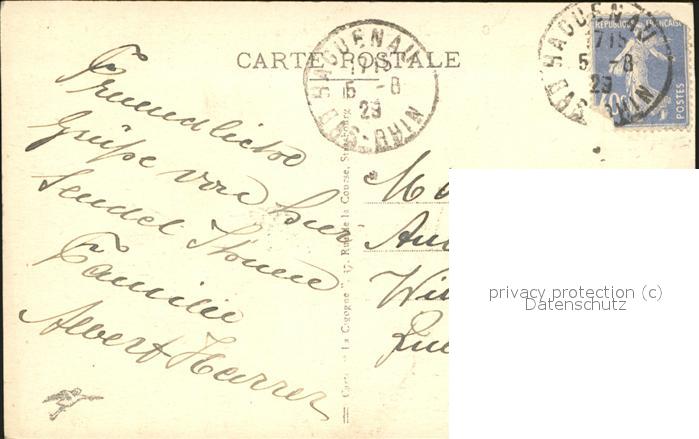 CARTE POSTALE
HAGUENAU
17 15
5 -8
29
BAS-RHIN
HAGUENAU
17 15
5 -8
29
BAS-RHIN
REPUBLIQUE FRANÇAISE
POSTES
40c
Freundliche
Grüße von hier
Sendet Ihnen
Familie
Albert Harrer
"La Cigogne", 37, Rue de la Course, Strasbourg
privacy protection (c)
Datenschutz